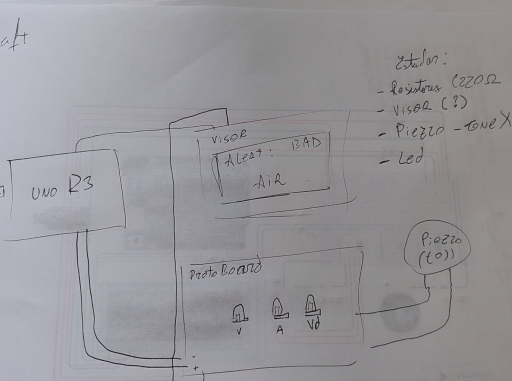 aft
Estudar:
- Resistores (220Ω
- VISOR (?)
- Piezzo - tone X
- Led
VISOR
Alert: BAD
AIR
UNO R3
Piezzo
ProtoBoard
V A Vd
-
+